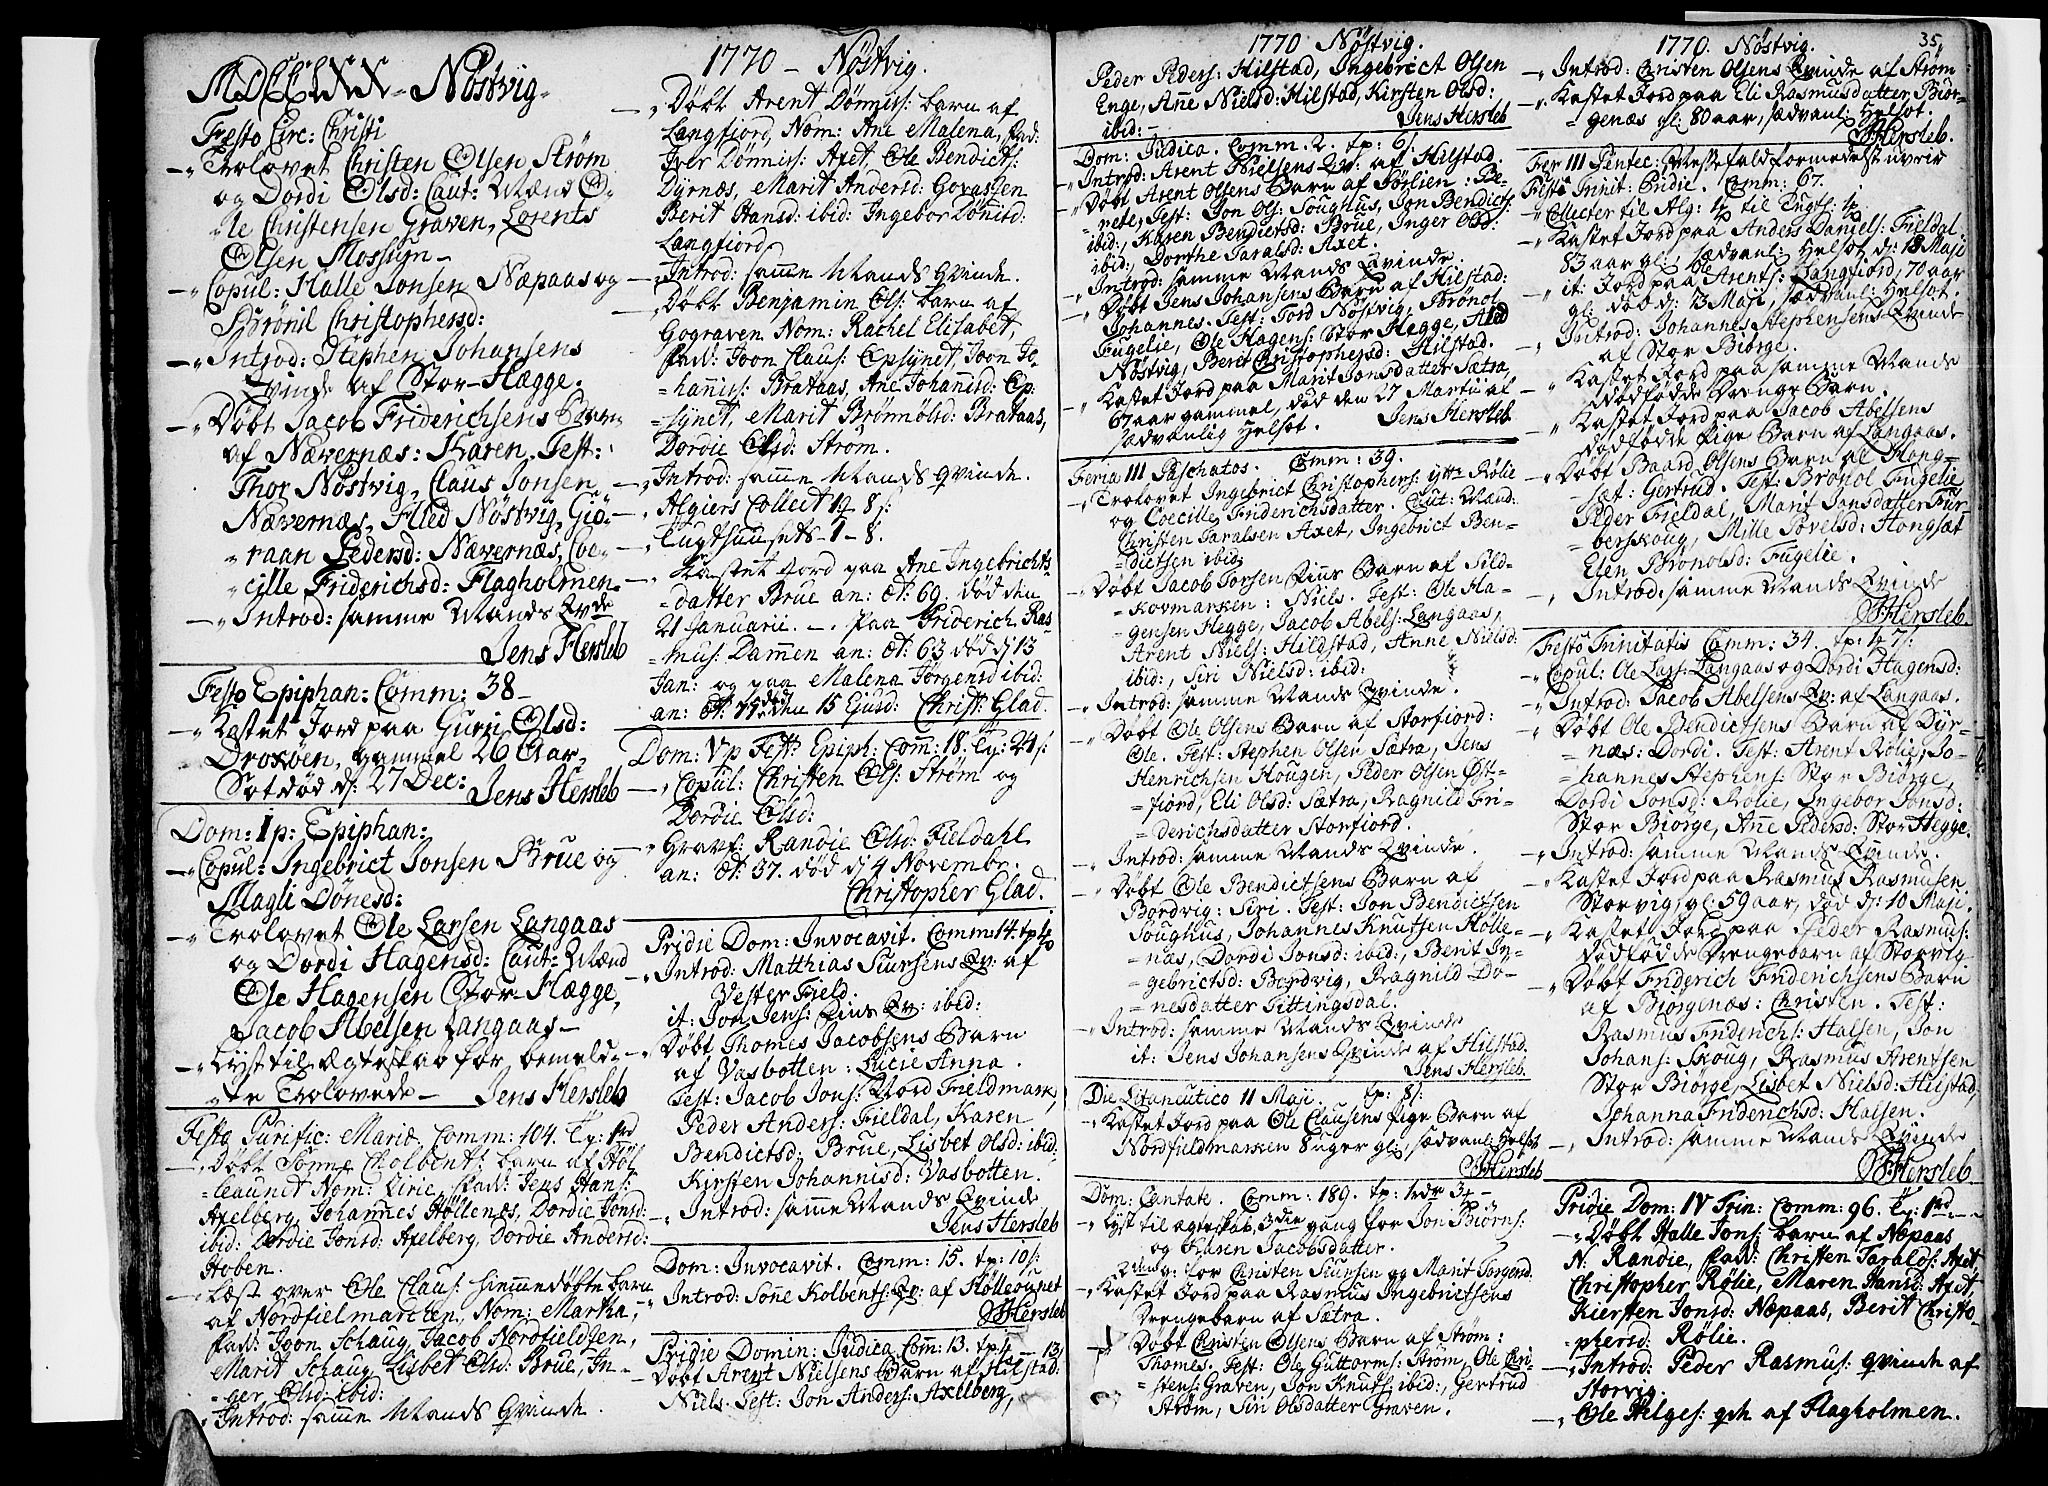 MDCCLXX - Nöstvig -
Festo Circ: Christi
Trolovet Christen Olsen Strøm
og Dordi Olsd: Caut: Mænd O-
le Christensen Graven, Lorents
Olsen Mossum -
Copul: Halle Jonsen Næpaas og
Brönil Christophersd:
Introd: Stephen Johansens
Qvinde af Stor-Hægge.
Döbt Jacob Friderichsens Barn
af Nævernæs: Karen. Test:
Thor Nöstvig, Claus Jonsen
Nævernæs, Alled Nöstvig, Giö-
raan Pedersd: Nævernæs, Coe-
cille Friderichsd: Flagholmen
Introd: samme Mands Qvde
Jens Hersleb
Festo Epiphan: Comm: 38 -
Kastet Jord paa Guri Olsd:
Droxöen, gammel 26 Aar,
Sotdöd d: 27 Dec: Jens Hersleb
Dom: 1 p: Epiphan:
Copul: Ingebrict Jonsen Brue og
Magli Dönesd:
Trolovet Ole Larsen Langaas
og Dordi Hagensd: Caut: Mænd
Ole Hagensen Stor-Hægge,
Jacob Abelsen Langaas -
Lyst til Ægteskab for bemeld-
te Trolovede - Jens Hersleb
Festo Purific: Mariæ, Comm: 104. Tp: 1rd
Döbt Sönne Kolbents: barn af Höl-
leaunet Nom: Lirie, Fad: Jens Hans:
Axelberg, Johannes Höllenes, Dordie Jonsd:
ibid: Dordie Jonsd: Axelberg, Dordie Andersd:
Hoben.
Læst over Ole Claus: hiemmedöbte barn
af Nordfielmarcken, Nom: Martha,
Fad: Joon Schaug, Jacob Nordfieldsen,
Marit Schaug, Lisbet Olsd: Brue, In-
ger Olsd: ibid:
Introd: samme Mands Qvinde.
1770 - Nöstvig.
Döbt Arent Dönnis: barn af
Langfiord, Nom: Ane Malena, Fad:
Iver Dönnis: Axet, Ole Bendicts:
Dyrnæs, Marit Andersd: Govassen
Berit Hansd: ibid: Ingebor Dönisd:
Langfiord,
Introd: samme Mands Qvinde.
Döbt Benjamin Ols: barn af
Gograven Nom: Rachel Elisabet,
Fad: Joon Claus: Opsynet, Joon Jo-
hannis: Brataas, Ane Johanisd: Op-
synet, Marit Brönnölsd: Brataas,
Dordie Olsd: Strøm.
Introd: samme Mands qvinde.
Algiers Collect 1 8 s:
Tugthusets - 1 - 8.
Kastet Jord paa Ane Ingebrichts-
datter Brue an: æt: 69. död den
21 Januarii. - . Paa Friderich Ras-
mus: Dammen an: æt: 63 död d: 13
Jan: og paa Malena Jörgensd ibid:
an: æt: 77. död den 15 Ejusd: Christ: Glad.
Dom: V p Fest: Epiph: Com: 18. Tp: 24 s:
Copul: Christen Ols: Strøm og
Dordie Olsd:
Gravf: Randie Olsd: Fieldahl
an: æt: 37. död d: 4 Novembr:
Christopher Glad.
Pridie Dom: Invocavit. Comm: 14. tp
Introd: Matthias Siursens Qv: af
Vester Field.
it: Jon Jens: Lius Qv: ibid:
Döbt Thomes Jacobsens Barn
af Vasbotten: Lucie Anna.
Test: Jacob Jons: Nord Fieldmark,
Peder Anders: Fieldal, Karen
Bendictsd: Brue, Lisbet Olsd: ibid:
Kirsten Johannisd: Vasbotten.
Introd: samme Mands Qvinde
Jens Hersleb
Dom: Invocavit. Comm: 15. tp: 10 s:
Introd: Sone Kolbents: Qv: af Hölleognet
JHersleb
Pridie Domin: Judica. Com: 13. tp: 4 - 13
Döbt Arent Nielsens Barn af Hilstad:
Niels. Test: Jon Anders: Axelberg,
1770 Nöstvig.
Peder Peders: Hilstad, Ingebrect Olsen
Enge, Ane Nielsd: Hilstad, Kirsten Olsd:
ibid: -
Jens Hersleb
Dom: Judica. Comm. 2. tp: 6 s:
Introd: Arent Nielsens Qv: af Hilstad.
Döbt Arent Olsens Barn af Sörlien: Be-
rete, Test: Jon Ols: Soughus, Jon Bendicts:
ibid:, Karen Bendictsd: Brue, Inger Olsd:
ibid:, Dorthe Taralsd: Axet.
Introd: samme Mands Qvinde.
Döbt Jens Johansens Barn af Hilstad:
Johannes. Test: Tord Nöstvig, Brönol
Fugelie, Ole Hagens: Stor Hegge, Aled
Nöstvig, Berit Christophersd: Hilstad.
Kastet Jord paa Marit Jonsdatter Sætra,
67 aar gammel, död den 27 Martii af
sædvanlig Helsot. Jens Hersleb
Feria III Paschatos. Comm: 39.
Trolovet Ingebrict Christophers: ytte Rölie
og Coecille Friderichsdatter. Caut: Mænd:
Christen Taralsen Axet, Ingebrict Ben-
dictsen ibid:
Döbt Jacob Torsen Lius Barn af Sild-
kovmarken: Niels. Test: Ole Ha-
gensen Hegge, Jacob Abels: Langaas,
Arent Niels: Hildstad, Anne Nielsd:
ibid:, Siri Nielsd: ibid:
Introd: samme Mands Qvinde.
Döbt Ole Olsens Barn af Storfiord:
Ole. Test: Stephen Olsen Sætra, Jens
Henrichsen Hougen, Peder Olsen Øst-
fiord, Eli Olsd: Sætra, Ragnild Fri-
derichsdatter Storfiord.
Introd: samme Mands Qvinde.
Döbt Ole Bendictsens Barn af
Bordvig: Siri. Test: Jon Bendictsen
Soughus, Johannes Knutsen Hölle-
nas, Dordi Jonsd: ibid:, Berit In-
gebrictsd: Bordvig, Ragnild Dö-
nesdatter Tittingsdal.
Introd: samme Mands Qvinde
it: Jens Johansens Qvinde af Hilstad.
Jens Hersleb.
Die Litaneutico 11 Maji. tp: 8 s:
Kastet Jord paa Ole Clausens Pige Barn af
Nordfieldmarken 8 uger gl:, sædvanl: Helsot
JHersleb
Dom: Cantate. Comm: 189. tp: 1rdr 3
Lyst til ægteskab 3die gang for Jon Biörns:
og Karen Jacobsdatter.
2den g: for Christen Siursen og Marit Torgersd.
Kastet Jord paa Rasmus Ingebrictsens
Drengebarn af Sætra.
Döbt Christen Olsens Barn af Strøm:
Thomes. Test: Ole Guttorms: Strøm, Ole Chri-
stens: Graven, Jon Knuts: ibid:, Gertrud
Strøm, Siri Olsdatter Graven.
1770. Nöstvig. 35
Introd: Christen Olsens Qvinde af Strøm
Kastet Jord paa Eli Rasmusdatter Biör-
genæs gl: 80 aar, sædvanl: Helsot.
JHersleb.
Fer III Pentec: Messefald formedelst uveir
Festo Trinit: Pridie. Comm: 67.
Collecter til Alg: til Tugts:
Kastet Jord paa Anders Daniels: Fieldal.
83 aar gl:, sædvanl: Helsot d: 18 Maji
it: Jord paa Ole Arents: Langfiord, 70 aar
gl: död d: 23 Maji, sædvanl: Helsot.
Introd: Johannes Stephensens Qvinde
af Stor Biörge.
Kastet Jord paa samme Mands
dödfödde Drenge Barn.
Kastet Jord paa Jacob Abelsens
dödfödde Pige Barn af Langaas.
Döbt Baard Olsens Barn af Hong-
sæt: Gertrud. Test: Brönol Fugelie
Peder Fieldal, Marit Jonsdatter Fur-
berskoug, Mille Povelsd: Hongsæt
Elen Brönolsd: Fugelie.
Introd: samme Mands Qvinde
JHersleb.
Festo Trinitatis Comm: 34. tp: 7 s:
Copul: Ole Lars: Langaas og Dordi Hagensd:
Introd: Jacob Abelsens Qv: af Langaas.
Döbt Ole Bendictsens Barn af Dyr-
næs: Dordi. Test: Arent Rölie, Jo-
hannes Stephens: Stor Biörge,
Dordi Jonsd: Rölie, Ingebor Jonsd:
Stor Biörge, Anne Pedersd: Stor Hegge.
Introd: samme Mands Qvinde.
Kastet Jord paa Rasmus Rasmusen
Storvig, gl: 59 aar, död d: 10 Maji.
Kastet Jord paa Peder Rasmus:
dödfödde Drengebarn af Storvig
Döbt Friderich Friderichsens Barn
af Biörgenæs: Christen. Test:
Rasmus Friderichs: Halsen, Jon
Johans: Skoug, Rasmus Arentsen
Stor Biörge, Lisbet Nielsd: Hilstad,
Johanna Friderichsd: Halsen.
Introd: samme Mands Qvinde
JHersleb
Pridie Dom: IV Trin: Comm: 96. Tp: 1rd -
Döbt Halle Jons: barn af Næpaas
N: Randie, Fad: Christen Taralds: Axet,
Christopher Rölie, Maren Hansd: Axet,
Kiersten Jonsd: Næpaas, Berit Christo-
phersd: Rölie.
Introd: Peder Rasmus: qvinde af
Storvig.
Ole Helges: qv: af Flagholmen.